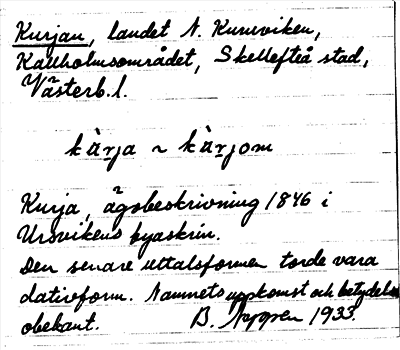 Kurjan, landet N. Kuruviken,
Kallholmsområdet, Skellefteå stad,
Västerb.l.
kùrja ~ kùrjom
Kurja, ägobeskrivning 1846 i
Ursvikens byaskrin.
Den senare uttalsformen torde vara
dativform. Namnets uppkomst och betydelse
obekant. B. Nygren 1933.